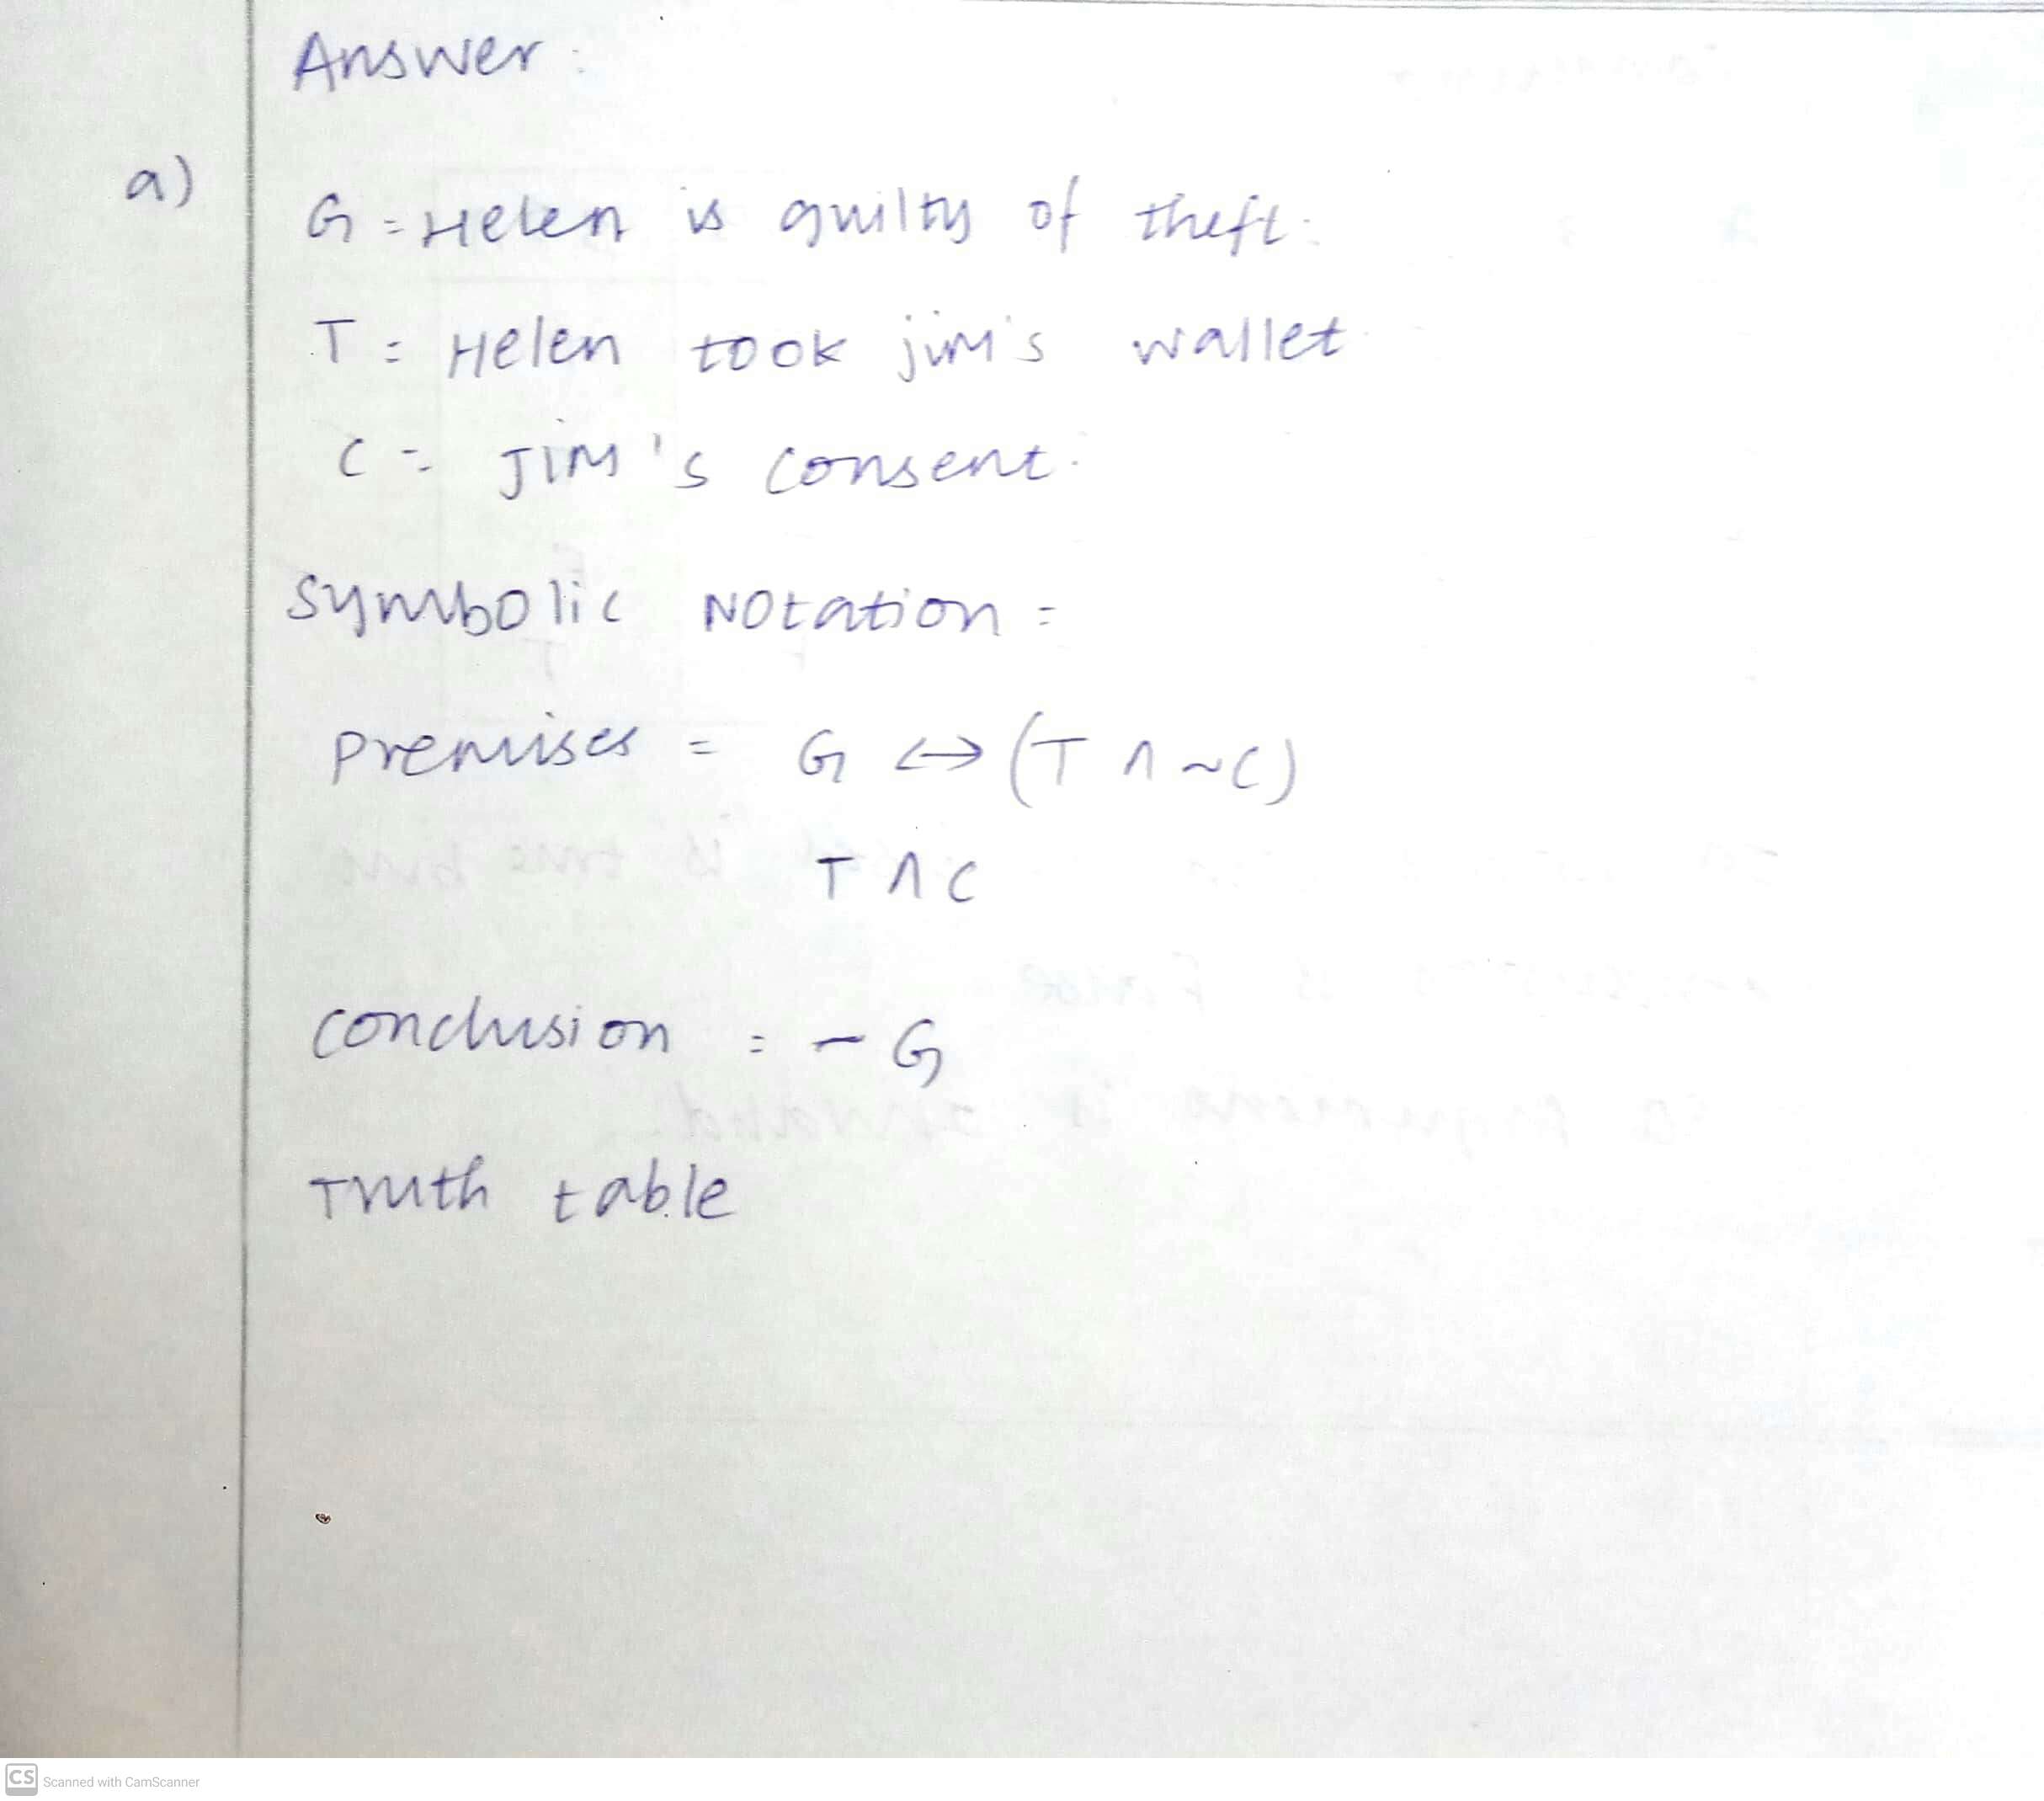 Answer:
a)
G = Helen is guilty of theft.
T = Helen took jim's wallet.
C = Jim's consent.
symbolic Notation =
premises = G ↔ (T ∧ ~C)
T ∧ C
conclusion = ~ G
Truth table
CS Scanned with CamScanner